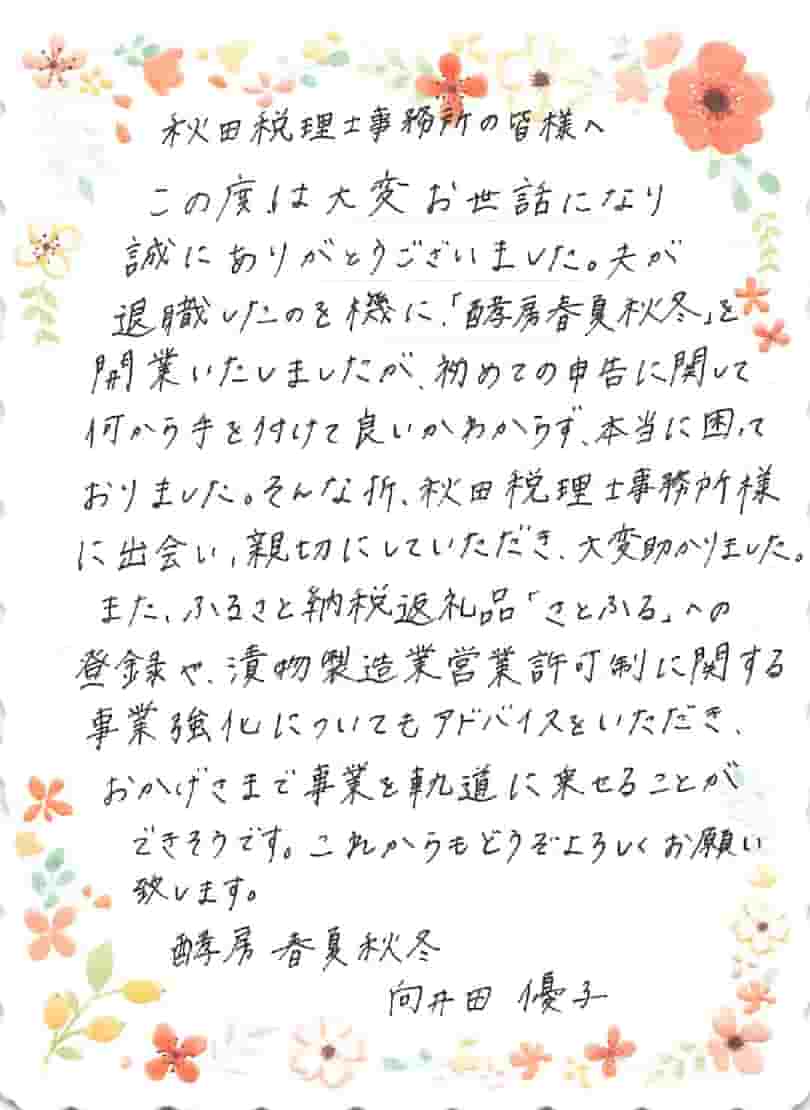 秋田税理士事務所の皆様へ
この度は大変お世話になり
誠にありがとうございました。夫が
退職したのを機に、「酵房春夏秋冬」を
開業いたしましたが、初めての申告に関して
何から手を付けて良いかわからず、本当に困って
おりました。そんな折、秋田税理士事務所様
に出会い、親切にしていただき、大変助かりました。
また、ふるさと納税返礼品「さとふる」への
登録や、漬物製造業営業許可制に関する
事業強化についてもアドバイスをいただき、
おかげさまで事業を軌道に乗せることが
できそうです。これからもどうぞよろしくお願い
致します。
酵房 春夏秋冬
向井田 優子